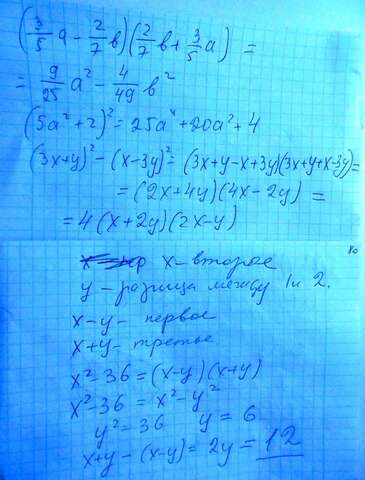 (3/5 a - 2/7 в)(2/7 в + 3/5 a) =
= 9/25 a² - 4/49 в²
(5a² + 2)² = 25a⁴ + 20a² + 4
(3x+y)² - (x-3y)² = (3x+y-x+3y)(3x+y+x-3y) =
= (2x+4y)(4x-2y) =
= 4(x+2y)(2x-y)
x - второе
y - разница между 1 и 2.
x-y - первое
x+y - третье
x² - 36 = (x-y)(x+y)
x² - 36 = x² - y²
y² = 36 y = 6
x+y - (x-y) = 2y = 12